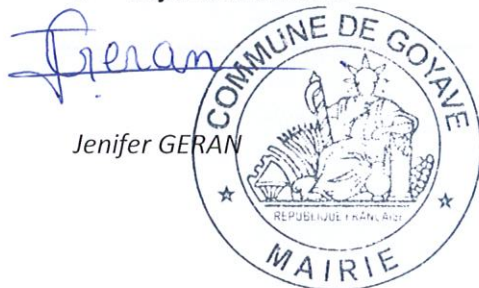 Geran
Jenifer GERAN
COMMUNE DE GOYAVE
REPUBLIQUE FRANÇAISE
MAIRIE